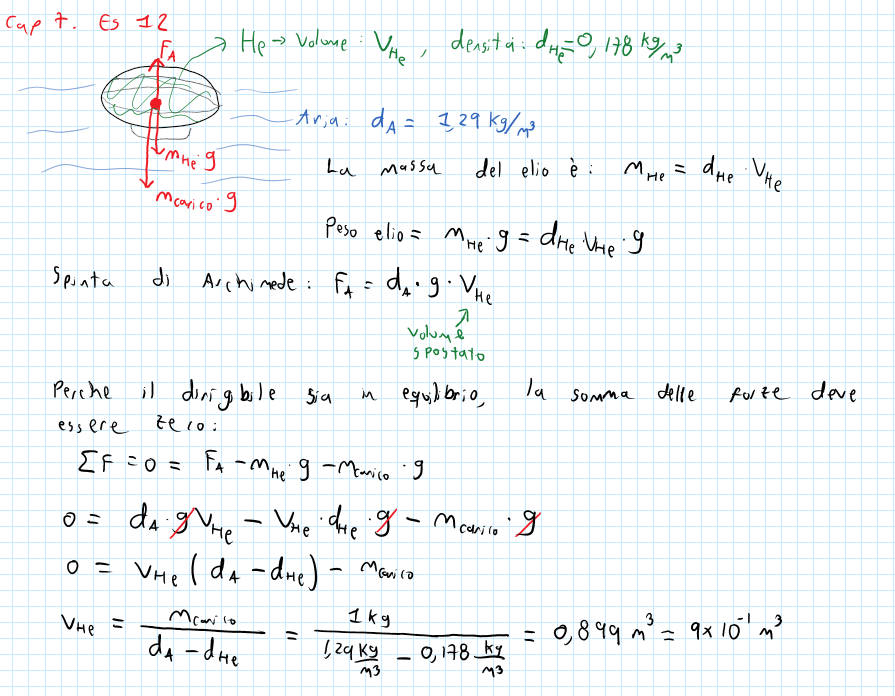 Cap 7. Es 12
He → Volume : V_He , densità : d_He = 0,178 kg/m³
F_A
Aria: d_A = 1,29 kg/m³
m_He · g
m_carico · g
La massa del elio è : m_He = d_He · V_He
Peso elio = m_He · g = d_He · V_He · g
Spinta di Archimede : F_A = d_A · g · V_He
volume
spostato
Perche il dirigibile sia in equilibrio, la somma delle forze deve
essere zero:
ΣF = 0 = F_A - m_He · g - m_carico · g
0 = d_A · g V_He - V_He · d_He · g - m_carico · g
0 = V_He ( d_A - d_He ) - m_carico
V_He = m_carico / (d_A - d_He) = 1 kg / (1,29 kg/m³ - 0,178 kg/m³) = 0,899 m³ = 9×10⁻¹ m³